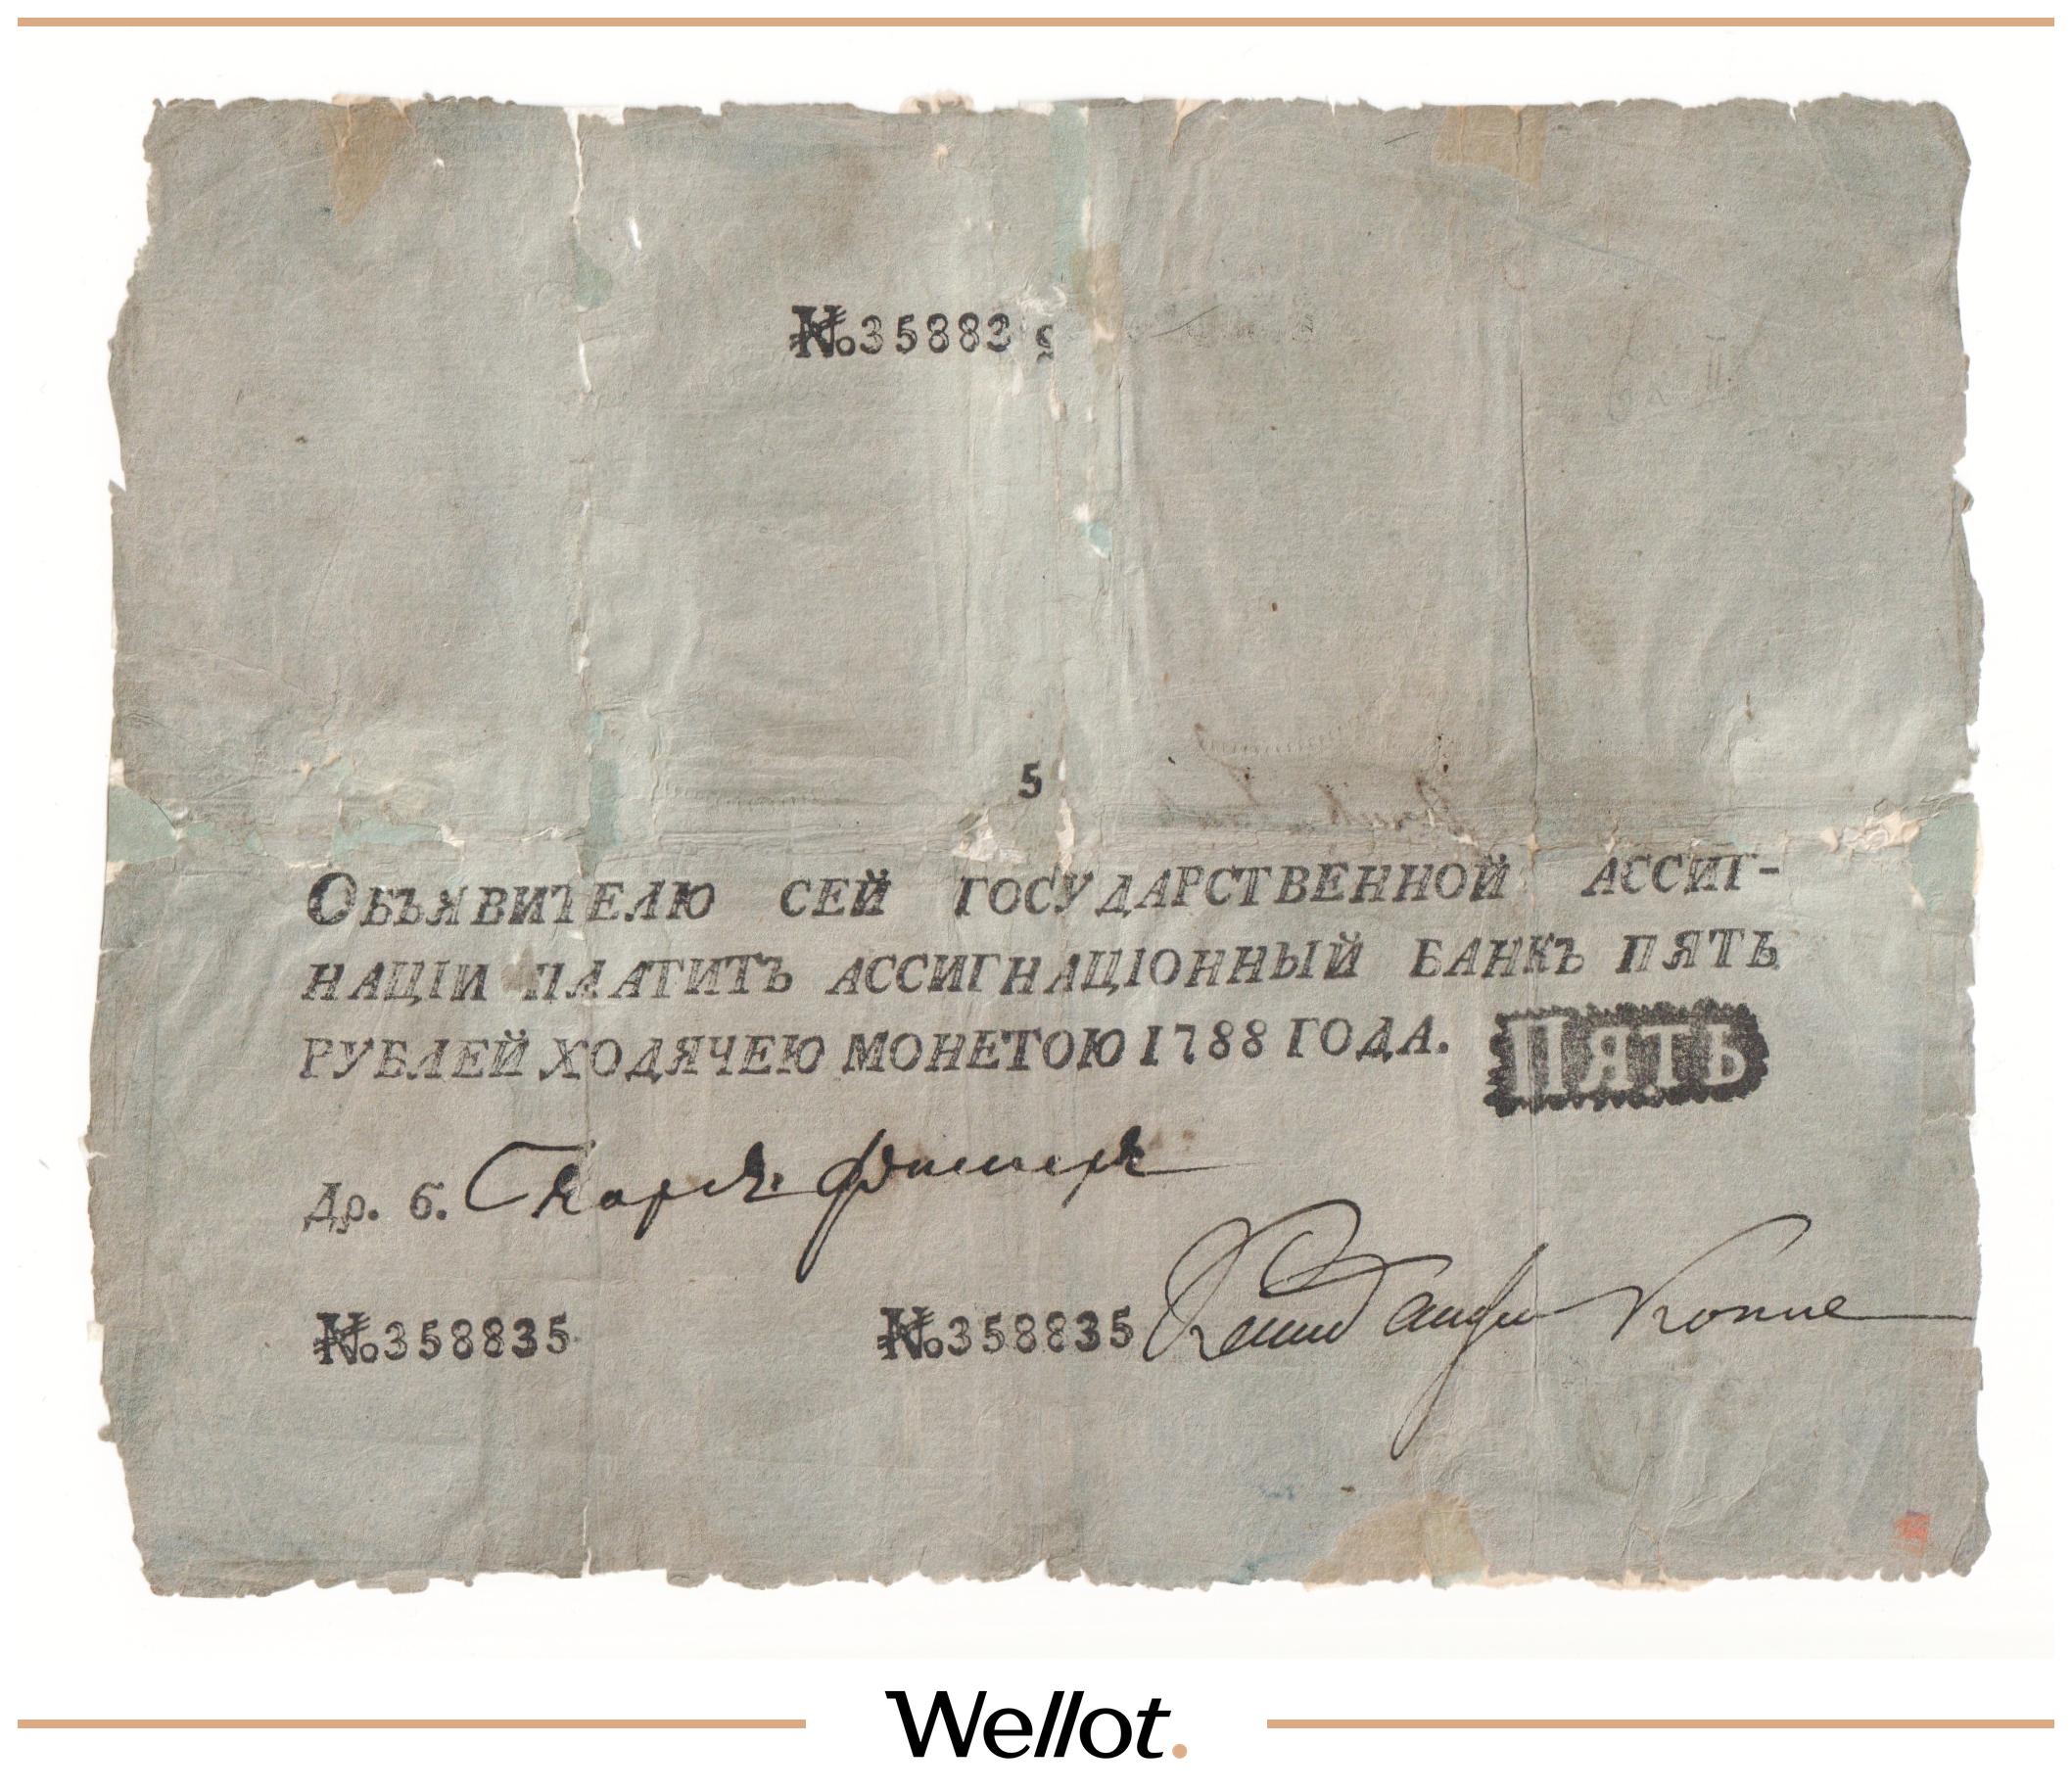 №358835
5
Объявителю сей государственной ассиг-
націи платитъ ассигнаціонный банкъ пять
рублей ходячею монетою 1788 года.
ПЯТЬ
Др. б.
№358835 №358835
Wellot.